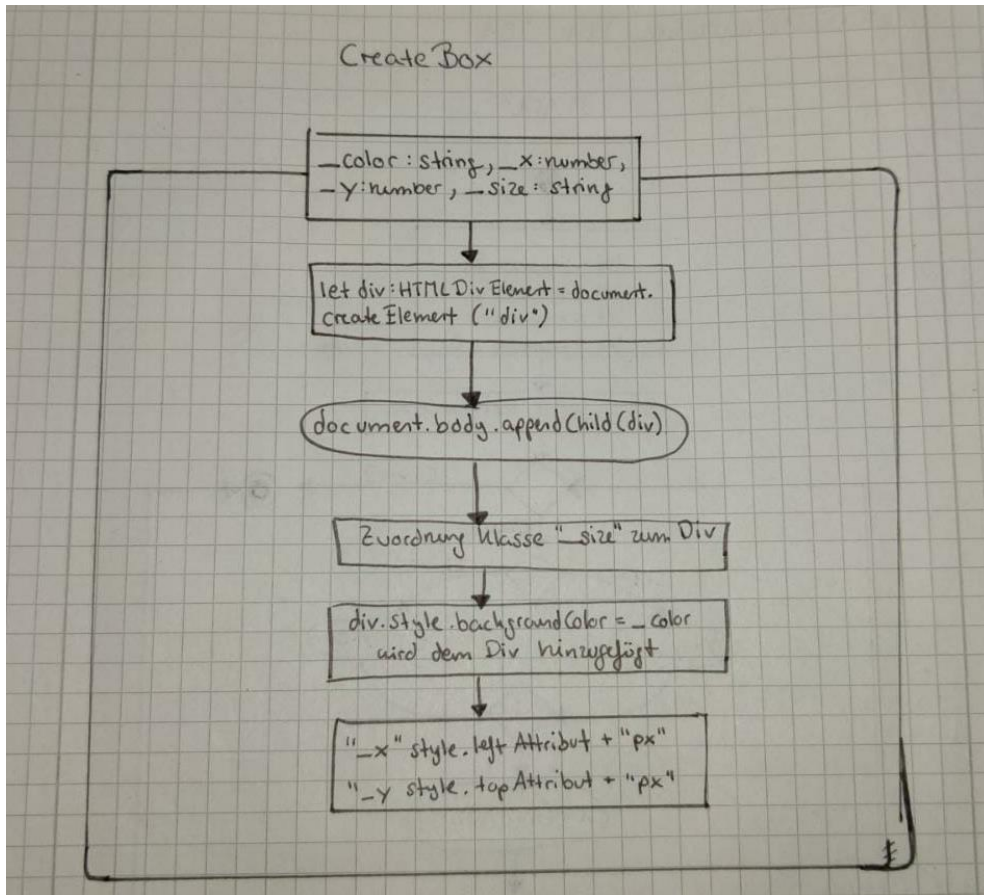 CreateBox
_color: string, _x: number,
_y: number, _size: string
let div: HTMLDivElement = document.
createElement ("div")
document.body.appendChild(div)
Zuordnung Klasse "_size" zum Div
div.style.backgroundColor = _color
wird dem Div hinzugefügt
"_x" style.left Attribut + "px"
"_y style.top Attribut + "px"